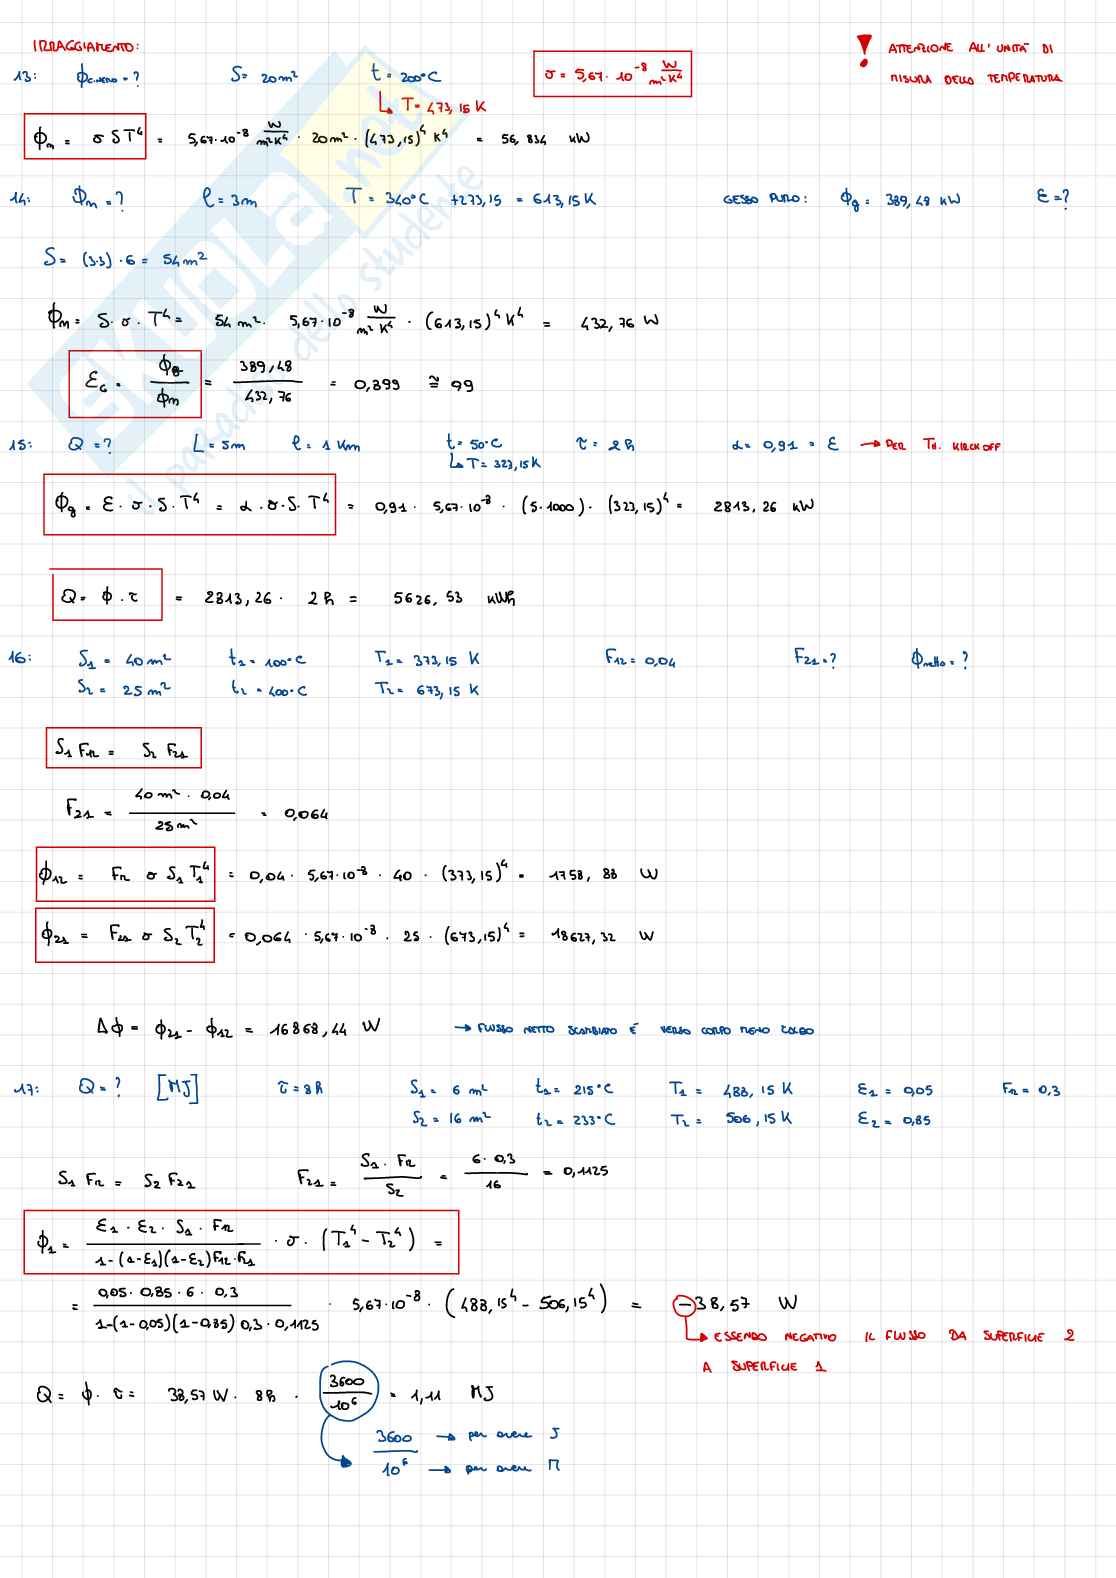 IRRAGGIAMENTO:
! ATTENZIONE ALL' UNITÀ DI
MISURA DELLO TEMPERATURA
13: ϕc.nero = ? S = 20 m² t = 200°C σ = 5,67 · 10⁻⁸ W/m²K⁴
↳ T = 473,15 K
ϕn = σ S T⁴ = 5,67·10⁻⁸ W/m²K⁴ · 20m² · (473,15)⁴ K⁴ = 56,834 kW
14: ϕn = ? l = 3m T = 340°C +273,15 = 613,15 K GESSO PURO: ϕg = 389,48 kW ε = ?
S = (3·3) · 6 = 54 m²
ϕn = S · σ · T⁴ = 54 m² · 5,67·10⁻⁸ W/m²K⁴ · (613,15)⁴ K⁴ = 432,76 W
εG = ϕg/ϕn = 389,48/432,76 = 0,899 ≅ 99
15: Q = ? L = 5m l = 1 Km t = 50°C τ = 2 h α = 0,91 = ε → PER TH. KIRCKOFF
↳ T = 323,15 K
ϕg = ε · σ · S · T⁴ = α · σ · S · T⁴ = 0,91 · 5,67·10⁻⁸ · (5·1000) · (323,15)⁴ = 2813,26 kW
Q = ϕ · τ = 2813,26 · 2 h = 5626,53 kWh
16: S₁ = 40 m² t₁ = 100°C T₁ = 373,15 K F₁₂ = 0,04 F₂₁ = ? ϕnetto = ?
S₂ = 25 m² t₂ = 400°C T₂ = 673,15 K
S₁ F₁₂ = S₂ F₂₁
F₂₁ = 40 m² · 0,04/25 m² = 0,064
ϕ₁₂ = F₁₂ σ S₁ T₁⁴ = 0,04 · 5,67·10⁻⁸ · 40 · (373,15)⁴ = 1758,88 W
ϕ₂₁ = F₂₁ σ S₂ T₂⁴ = 0,064 · 5,67·10⁻⁸ · 25 · (673,15)⁴ = 18627,32 W
Δϕ = ϕ₂₁ - ϕ₁₂ = 16868,44 W → FLUSSO NETTO SCAMBIATO È VERSO CORPO MENO CALDO
17: Q = ? [MJ] τ = 8 h S₁ = 6 m² t₁ = 215°C T₁ = 488,15 K ε₁ = 0,05 F₁₂ = 0,3
S₂ = 16 m² t₂ = 233°C T₂ = 506,15 K ε₂ = 0,85
S₁ F₁₂ = S₂ F₂₁ F₂₁ = S₁ · F₁₂/S₂ = 6 · 0,3/16 = 0,1125
ϕ₁ = ε₁ · ε₂ · S₁ · F₁₂/1-(1-ε₁)(1-ε₂)F₁₂·F₂₁ · σ · (T₁⁴ - T₂⁴) =
= 0,05 · 0,85 · 6 · 0,3/1-(1-0,05)(1-0,85) 0,3 · 0,1125 · 5,67·10⁻⁸ · (488,15⁴ - 506,15⁴) = -38,57 W
↳ ESSENDO NEGATIVO IL FLUSSO DA SUPERFICIE 2
A SUPERFICIE 1
Q = ϕ · τ = 38,57 W · 8 h · 3600/10⁶ = 1,11 MJ
3600 → per avere J
10⁶ → per avere M
SKUOLA.net
il paradiso dello studente